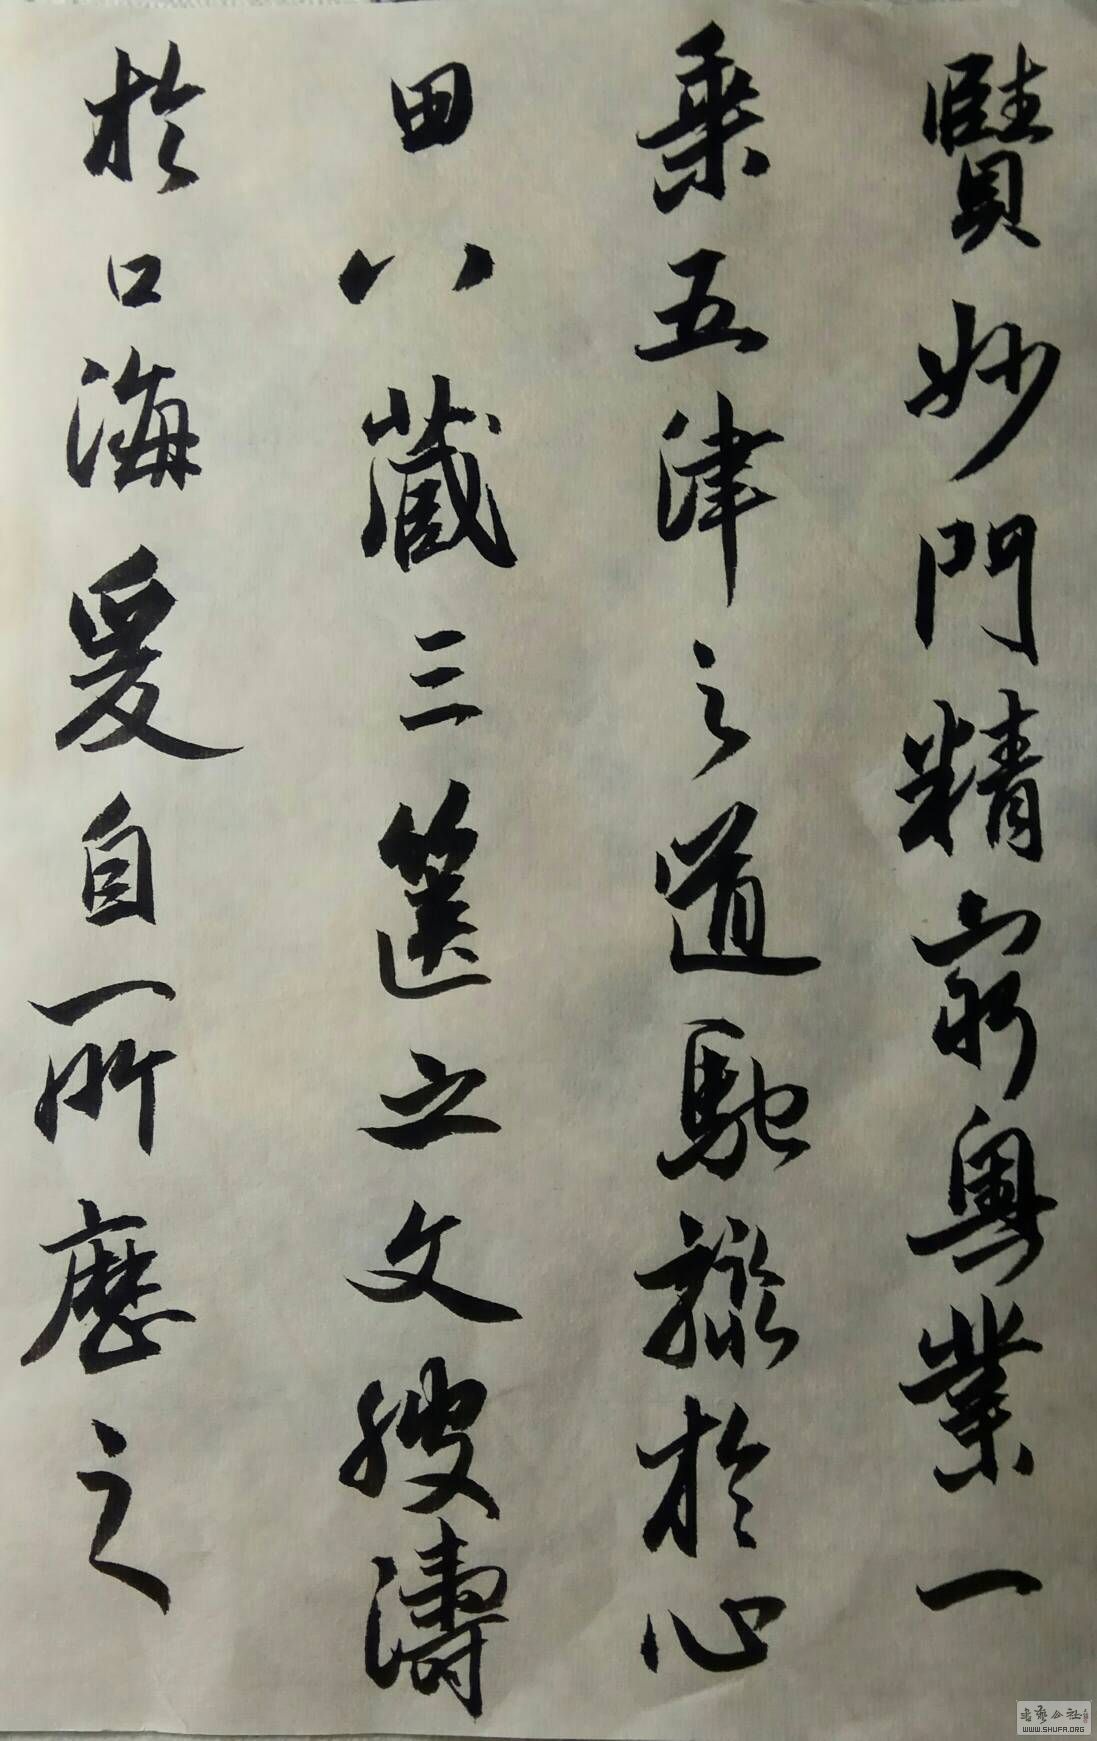 賢妙門精窮奧業一
乘五津之道馳驟於心
田八藏三篋之文波濤
於口海爰自所歷之
WWW.SHUFA.ORG